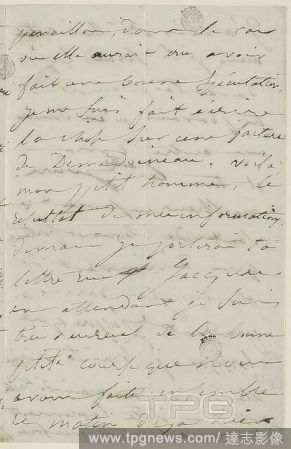 dans le cas
où elle aurait cru avoir
fait une bonne spéculation,
je me suis fait écrire
la chose sur une facture
de
mon petit homme, le
résultat de mes informations
demain je porterai ta
lettre rue St Jacques
en attendant je suis
très heureuse de la bonne
petite course que nous
avons faite ensemble
ce matin. Déjà
TPG
www.tpgnews.com/ 達志影像